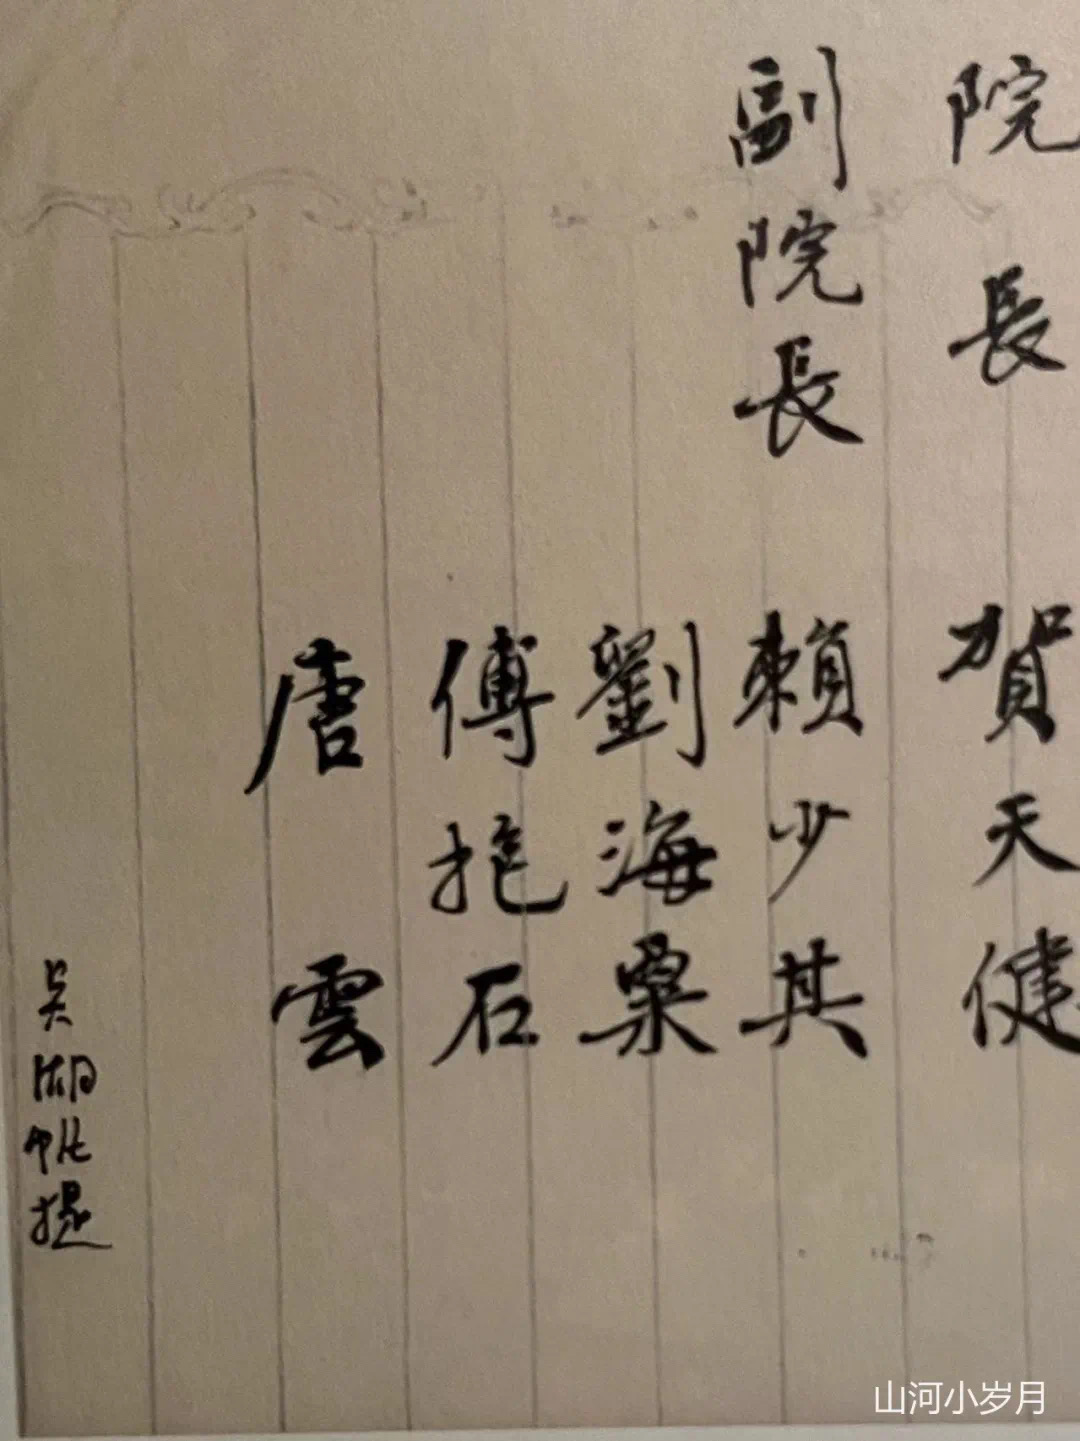 院長 賀天健
副院長 賴少其
劉海粟
傅抱石
唐雲
吴湖帆提
山河小岁月